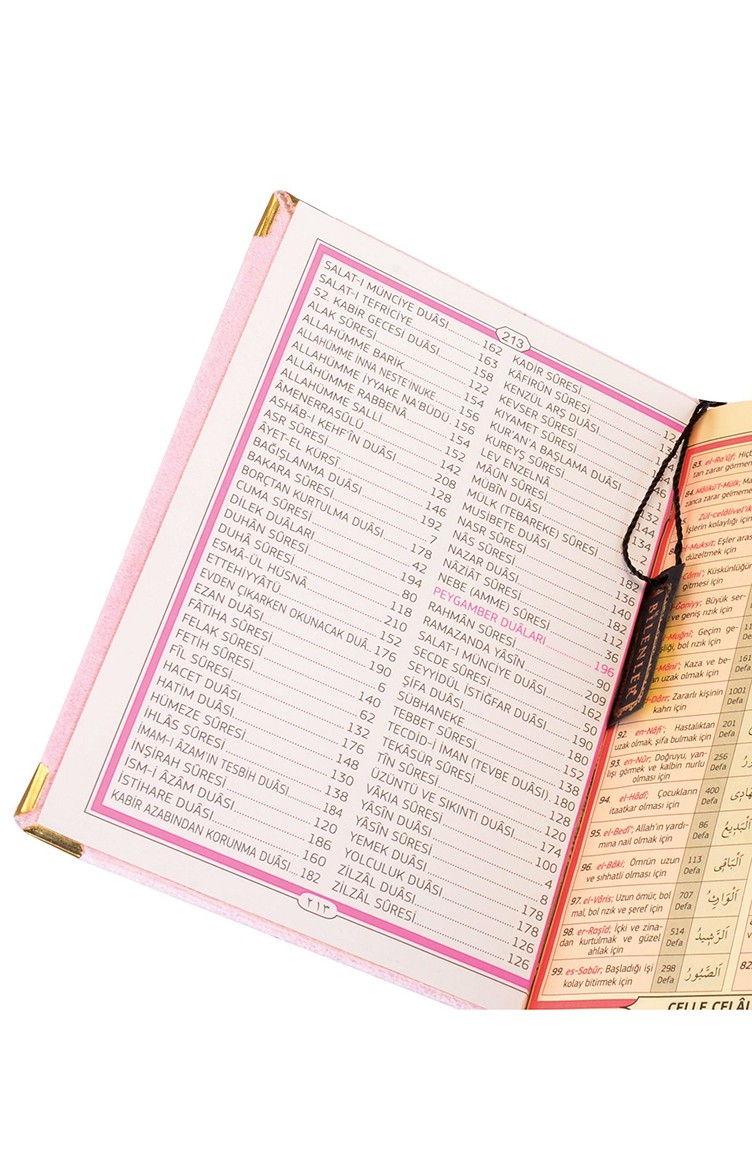 213
SALAT-I MÜNCİYE DUÂSI 162
SALAT-I TEFRİCİYE 163
52. KABİR GECESİ DUÂSI 158
ALAK SÛRESİ 122
ALLAHÜMME BARİK 154
ALLAHÜMME İNNA NESTE'İNUKE 156
ALLAHÜMME İYYAKE NA'BÜDÜ 156
ALLÂHÜMME RABBENÂ 154
ALLAHÜMME SALLİ 152
ÂMENERRASÛLÜ 142
ASHÂB-I KEHF'İN DUÂSI 208
ASR SÛRESİ 128
ÂYET-EL KÜRSİ 146
BAĞIŞLANMA DUÂSI 192
BAKARA SÛRESİ 7
BORÇTAN KURTULMA DUÂSI 178
CUMA SÛRESİ 42
DİLEK DUÂLARI 194
DUHÂN SÛRESİ 80
DUHÂ SÛRESİ 118
ESMÂ-ÜL HÜSNÂ 210
ETTEHİYYÂTÜ 152
EVDEN ÇIKARKEN OKUNACAK DUÂ 176
EZAN DUÂSI 190
FÂTİHA SÛRESİ 6
FELAK SÛRESİ 140
FETİH SÛRESİ 62
FÎL SÛRESİ 132
HACET DUÂSI 176
HATİM DUÂSI 148
HÜMEZE SÛRESİ 130
İHLÂS SÛRESİ 138
İMAM-I ÂZAM'IN TESBİH DUÂSI 184
İNŞİRAH SÛRESİ 120
İSM-İ ÂZÂM DUÂSI 186
İSTİHARE DUÂSI 160
KABİR AZABINDAN KORUNMA DUÂSI 182
KADİR SÛRESİ
KÂFİRÛN SÛRESİ
KENZÜL ARŞ DUÂSI
KEVSER SÛRESİ
KIYAMET SÛRESİ
KUR'AN'A BAŞLAMA DUÂSI
KUREYŞ SÛRESİ
LEV ENZELNÂ
MÂÛN SÛRESİ
MÜBÎN DUÂSI
MÜLK (TEBAREKE) SÛRESİ
MUSİBETE DUÂSI 182
NASR SÛRESİ 136
NÂS SÛRESİ 140
NAZAR DUÂSI 182
NÂZİÂT SÛRESİ 112
NEBE (AMME) SÛRESİ 36
PEYGAMBER DUÂLARI 196
RAHMÂN SÛRESİ 90
RAMAZANDA YÂSÎN 209
SALAT-I MÜNCİYE DUÂSI 162
SECDE SÛRESİ 50
SEYYİDÜL İSTİĞFAR DUÂSI 190
ŞİFA DUÂSI 180
SÜBHANEKE 152
TEBBET SÛRESİ 138
TECDİD-İ İMAN (TEVBE DUÂSI) 180
TEKÂSÜR SÛRESİ 128
TÎN SÛRESİ 120
ÜZÜNTÜ VE SIKINTI DUÂSI 174
VÂKIA SÛRESİ 100
YÂSÎN DUÂSI 4
YÂSÎN SÛRESİ 8
YEMEK DUÂSI 178
YOLCULUK DUÂSI 178
ZİLZÂL DUÂSI 126
ZİLZÂL SÛRESİ 126
٢١٣
BİLENLER
83. el-Ra'ûf; Hiçb
tan zarar görmem
84. Mâlikü'l-Mülk; Ma
zanca zarar gelmeme
Zül-celâlivel'ik
İşlerin kolaylığı için
l-Muksıt; Eşler aras
düzeltmek için
Câmi'; Küskünlüğün
gitmesi için
Ganiyy; Büyük ser-
ve geniş rızık için
Muğnî; Geçim ge-
bol rızık için
Mâni'; Kaza ve be-
an uzak olmak için
Dârr; Zararlı kişinin
kahrı için 1001 Defa
92. en-Nâfi'; Hastalıktan
uzak olmak, şifa bulmak için 201 Defa
93. en-Nûr; Doğruyu, yan-
lışı görmek ve kalbin nurlu
olması için 256 Defa
94. el-Hâdî; Çocukların
itaatkar olması için 400 Defa
95. el-Bedî'; Allah'ın yardı-
mına nail olmak için 86 Defa الْبَدِيعُ
96. el-Bâkî; Ömrün uzun
ve sıhhatli olması için 113 Defa الْبَاقِي
97. el-Vâris; Uzun ömür, bol
mal, bol rızık ve şeref için 707 Defa الْوَارِثُ
98. er-Raşîd; İçki ve zina-
dan kurtulmak ve güzel
ahlak için 514 Defa الرَّشِيدُ
99. es-Sabûr; Başladığı işi
kolay bitirmek için 298 Defa الصَّبُورُ
CELLE CELÂL